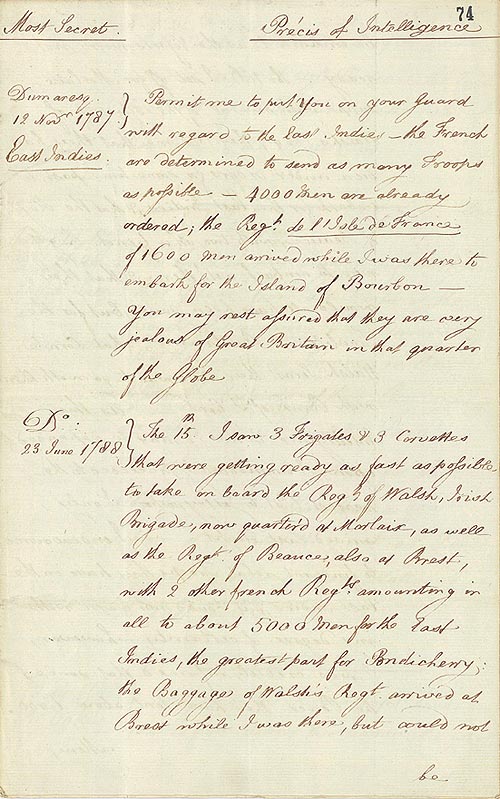 74
Most Secret. Précis of Intelligence
Dumaresq
12 Novr. 1787
East Indies.
Permit me to put You on your Guard
with regard to the East Indies – the French
are determined to send as many Troops
as possible – 4000 Men are already
ordered; the Regt. de l'Isle de France
of 1600 Men arrived while I was there to
embark for the Island of Bourbon –
You may rest assured that they are very
jealous of Great Britain in that quarter
of the Globe
Do.
23 June 1788
The 15th. I saw 3 Frigates & 3 Corvettes
that were getting ready as fast as possible
to take on board the Regt. of Walsh, Irish
Brigade, now quarter'd at Morlaix, as well
as the Regt. of Beauce, also at Brest,
with 2 other french Regts. amounting in
all to about 5000 Men for the East
Indies, the greatest part for Pondicherry;
the Baggage of Walsh's Regt. arrived at
Brest while I was there, but could not
be